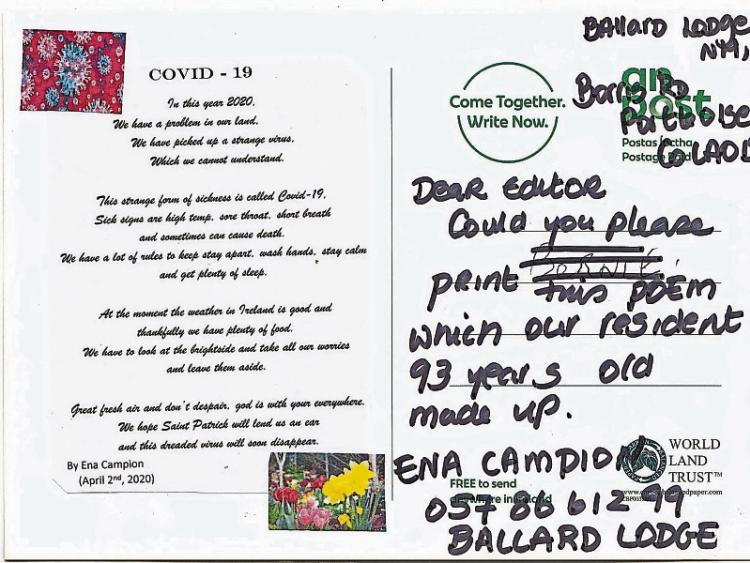 COVID - 19
In this year 2020,
We have a problem in our land,
We have picked up a strange virus,
Which we cannot understand.
This strange form of sickness is called Covid-19,
Sick signs are high temp, sore throat, short breath
and sometimes can cause death.
We have a lot of rules to keep stay apart, wash hands, stay calm
and get plenty of sleep.
At the moment the weather in Ireland is good and
thankfully we have plenty of food.
We have to look at the brightside and take all our worries
and leave them aside.
Great fresh air and don't despair, god is with your everywhere.
We hope Saint Patrick will lend us an ear
and this dreaded virus will soon disappear.
By Ena Campion
(April 2nd, 2020)
Ballard Lodge
Borris Rd
Portlaoise
Co LAOIS
an
post
Postas
Postage Paid
Come Together.
Write Now.
Dear Editor
Could you please
print this poem
which our resident
93 years old
made up.
ENA CAMPION
057 86 61299
BALLARD LODGE
FREE to send
anywhere in Ireland
WORLD
LAND
TRUST™